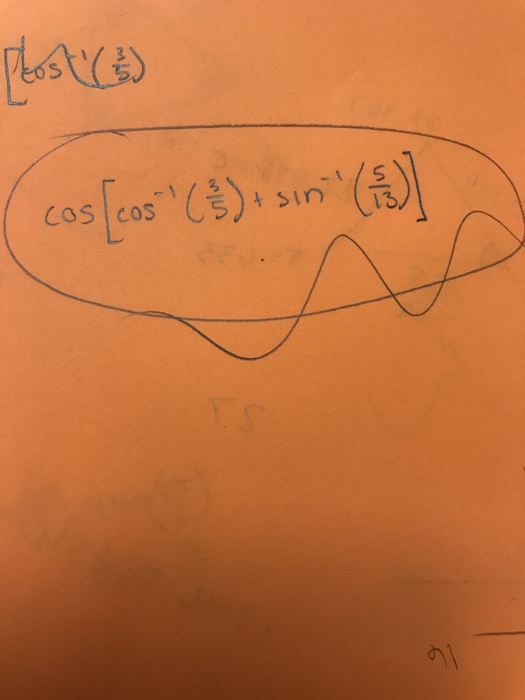 [cos⁻¹(3/5)
cos[cos⁻¹(3/5) + sin⁻¹(5/13)]